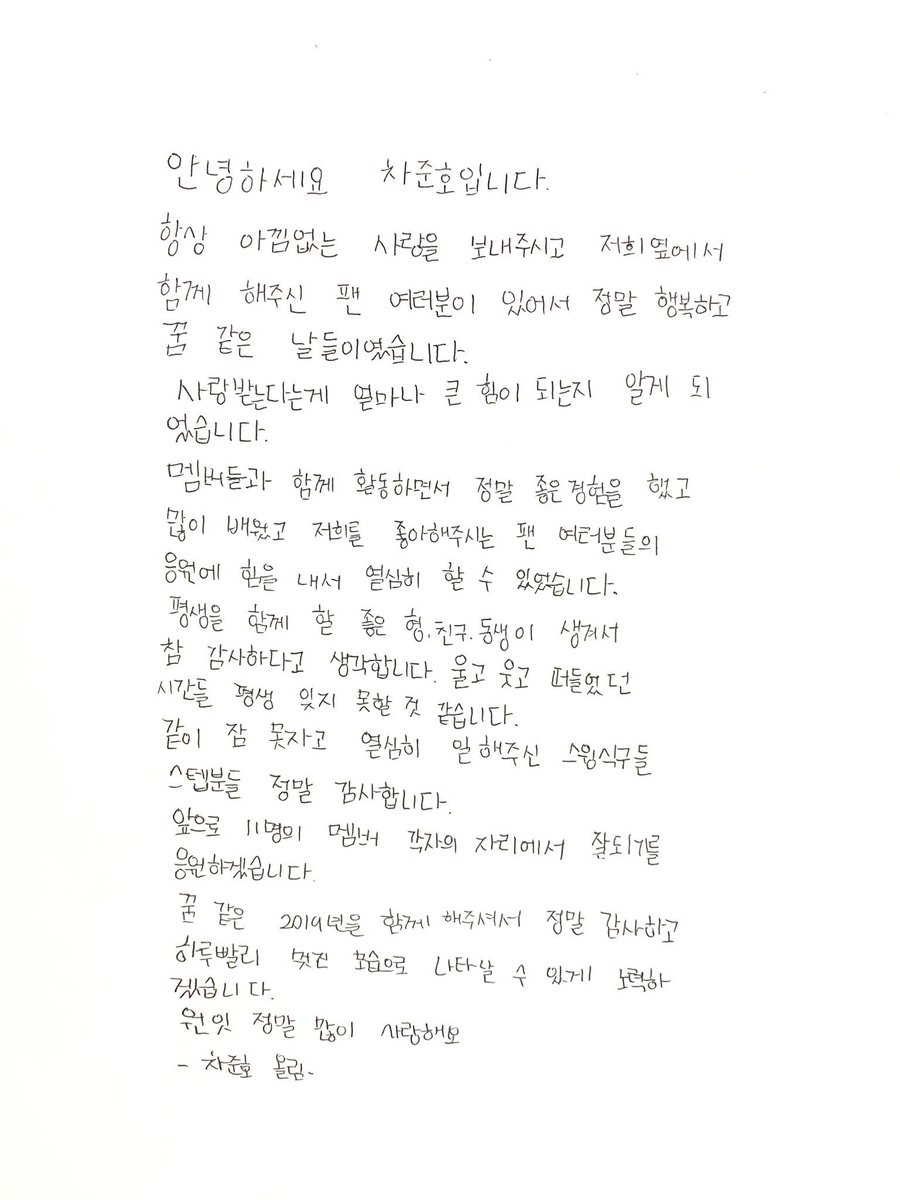 안녕하세요 차준호입니다.
항상 아낌없는 사랑을 보내주시고 저희옆에서
함께 해주신 팬 여러분이 있어서 정말 행복하고
꿈 같은 날들이였습니다.
사랑받는다는게 얼마나 큰 힘이 되는지 알게 되
었습니다.
멤버들과 함께 활동하면서 정말 좋은경험을 했고
많이 배웠고 저희를 좋아해주시는 팬 여러분들의
응원에 힘을 내서 열심히 할 수 있었습니다.
평생을 함께 할 좋은 형.친구.동생이 생겨서
참 감사하다고 생각합니다. 울고 웃고 떠들었던
시간들 평생 잊지 못할 것 같습니다.
같이 잠 못자고 열심히 일 해주신 스윙식구들
스텝분들 정말 감사합니다.
앞으로 11명의 멤버 각자의 자리에서 잘되기를
응원하겠습니다.
꿈 같은 2019년을 함께 해주셔서 정말 감사하고
하루빨리 멋진 모습으로 나타날 수 있게 노력하
겠습니다.
원잇 정말 많이 사랑해요
- 차준호 올림-